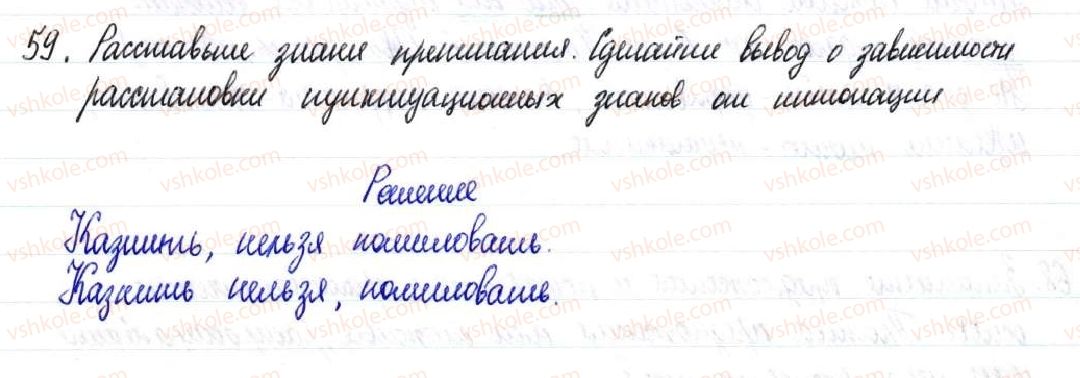 59. Расставьте знаки препинания. Сделайте вывод о зависимости
расстановки пунктуационных знаков от интонации
Решение
Казнить, нельзя помиловать.
Казнить нельзя, помиловать.
vshkole.com